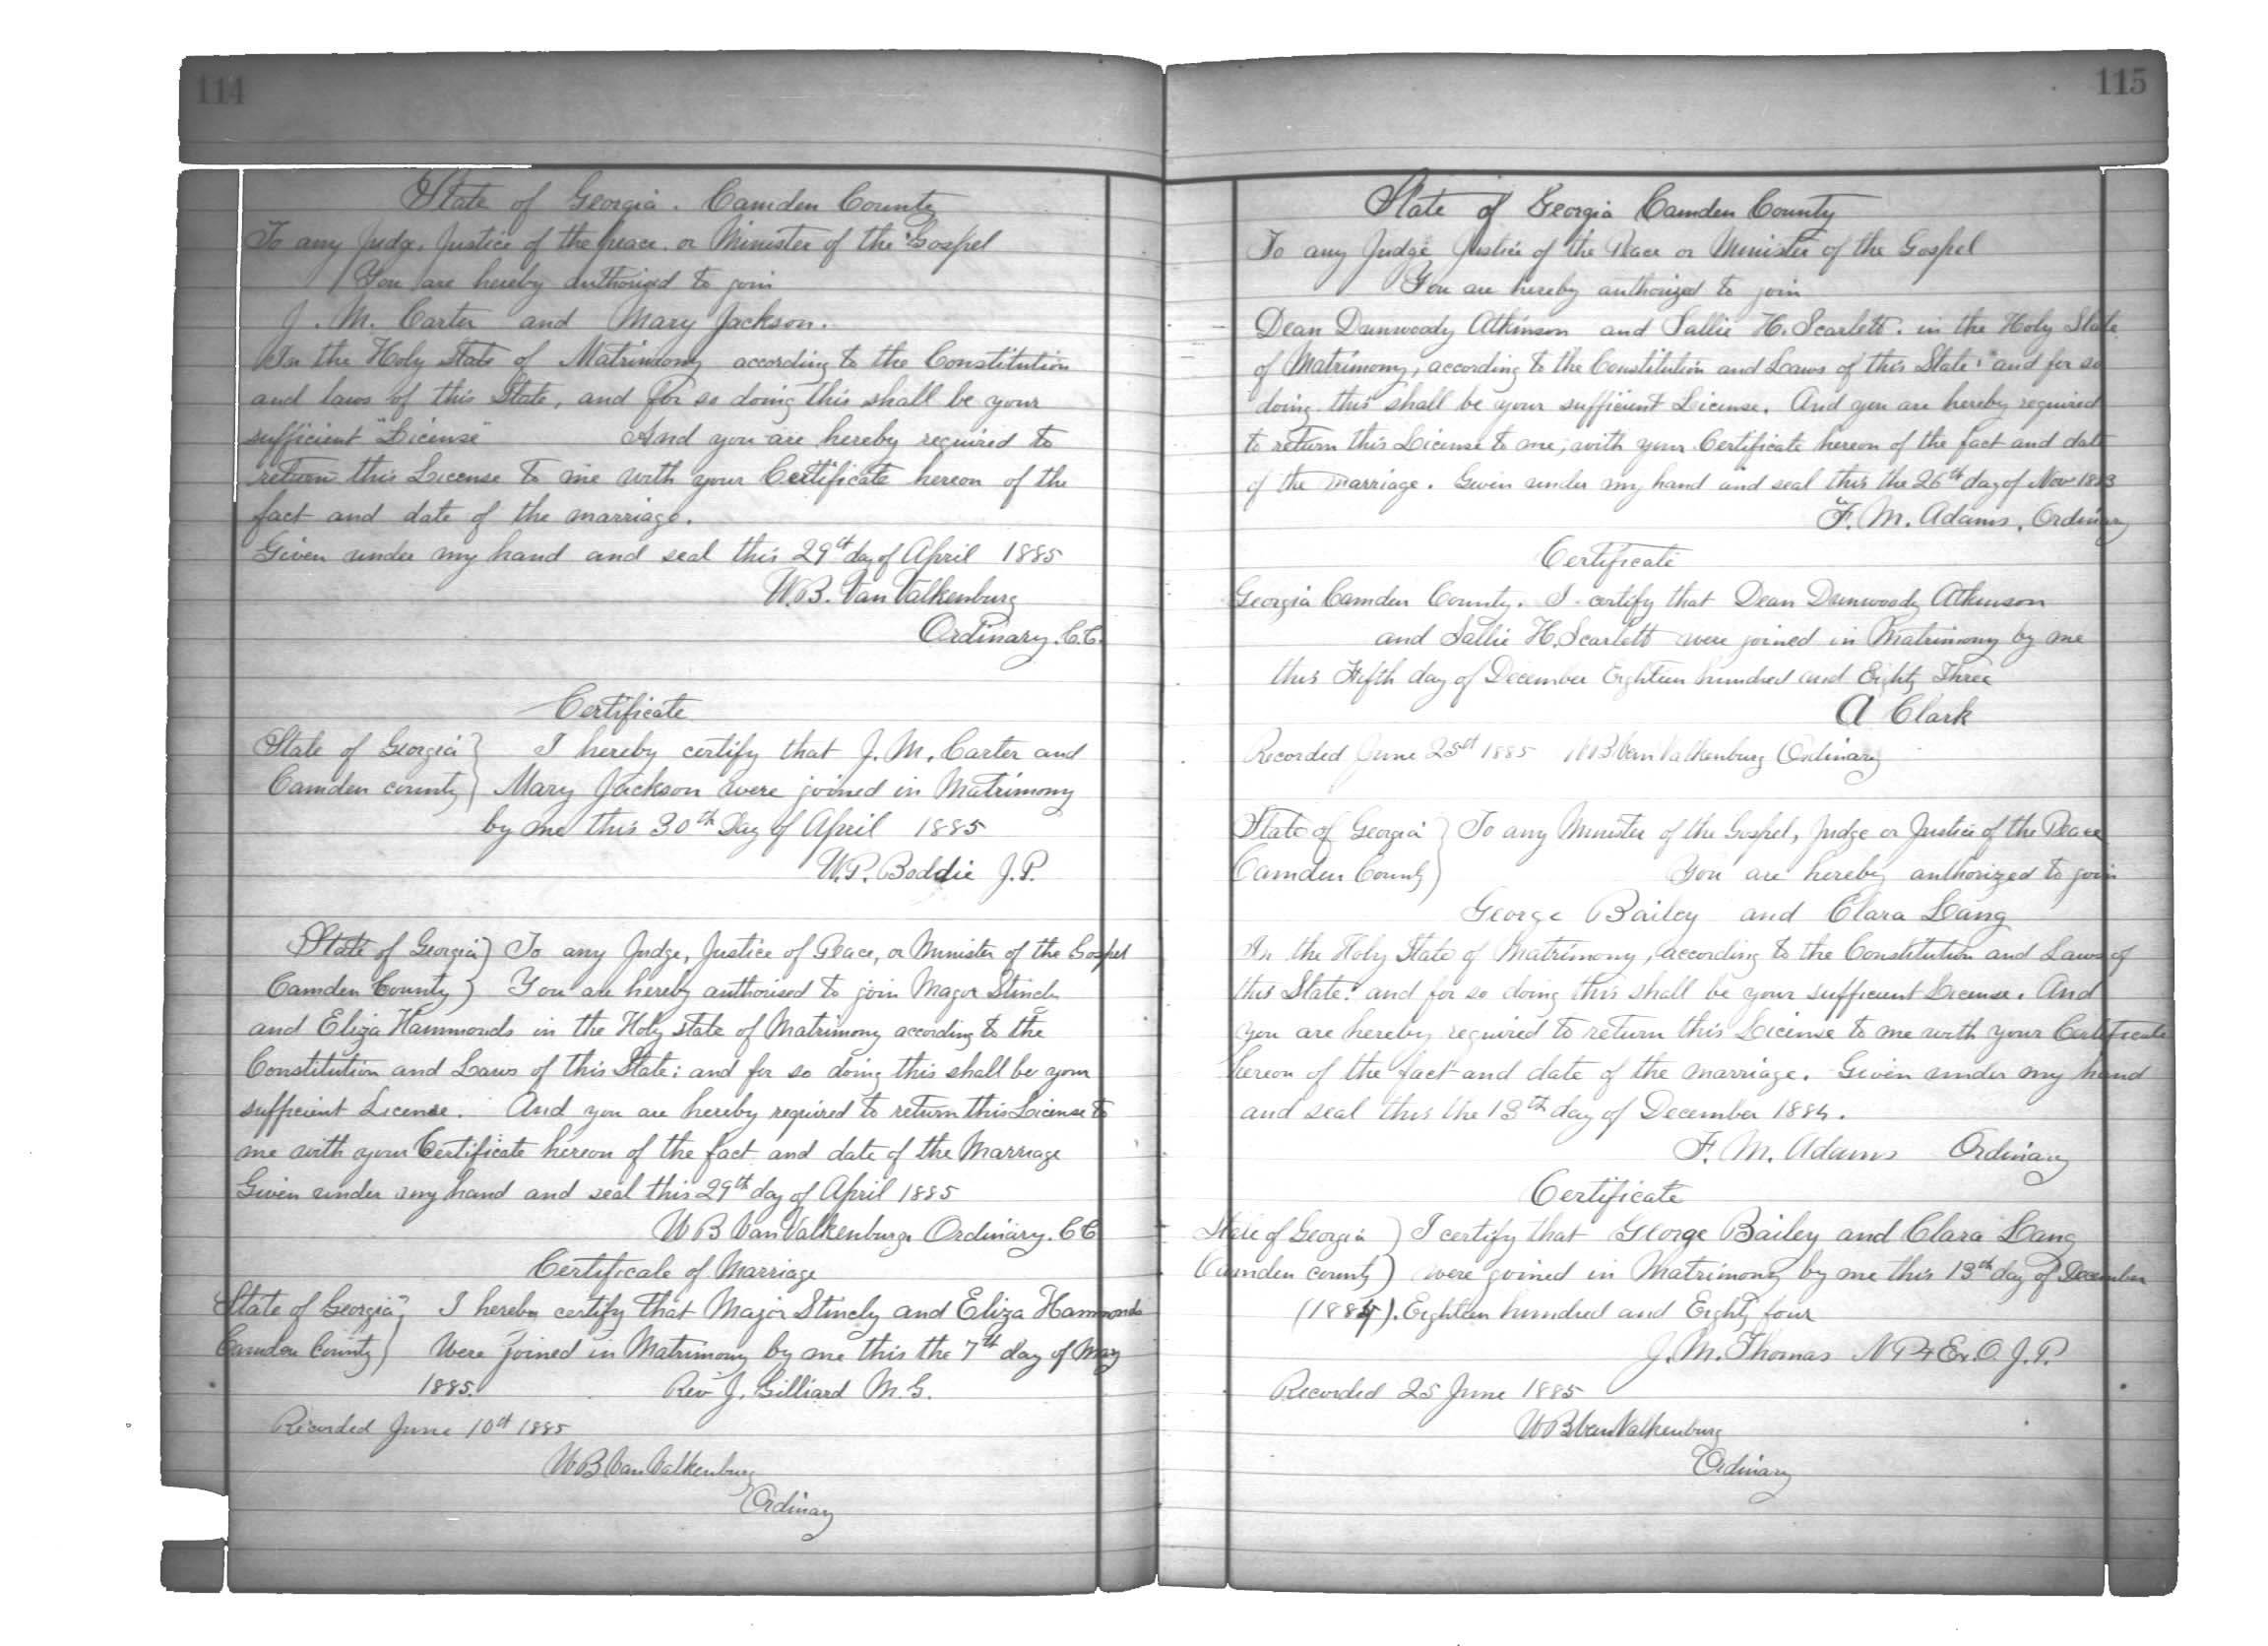 114
State of Georgia. Camden County
To any Judge, Justice of the peace. or Minister of the Gospel
You are hereby authorized to join
J. M. Carter and Mary Jackson.
In the Holy State of Matrimony according to the Constitution
and laws of this State, and for so doing this shall be your
sufficient "License" And you are hereby required to
return this License to me with your Certificate hereon of the
fact and date of the marriage.
Given under my hand and seal this 29th day of April 1885
W.B. Van Valkenburg
Ordinary. C.C.
Certificate
State of Georgia } I hereby certify that J. M. Carter and
Camden county } Mary Jackson were joined in Matrimony
by me this 30th Day of April 1885
W.P. Boddie J.P.
State of Georgia ) To any Judge, Justice of Peace, or Minister of the Gospel
Camden County ) You are hereby authorised to join Major Stincly
and Eliza Hammonds in the Holy state of Matrimony according to the
Constitution and Laws of this State; and for so doing this shall be your
sufficient License. And you are hereby required to return this License to
me with your Certificate hereon of the fact and date of the Marriage
Given under my hand and seal this 29th day of April 1885
W B Van Valkenburg Ordinary. C C
Certificate of Marriage
State of Georgia } I hereby certify that Major Stincly and Eliza Hammonds
Camden County } Were joined in Matrimony by me this the 7th day of May
1885. Rev J. Gilliard M.G.
Recorded June 10th 1885
W B Van Valkenburg
Ordinary
115
State of Georgia Camden County
To any Judge Justice of the Peace or Minister of the Gospel
You are hereby authorized to join
Dean Dunwoody Atkinson and Sallie H. Scarlett. in the Holy State
of Matrimony, according to the Constitution and Laws of this State: and for so
doing this shall be your sufficient License. And you are hereby required
to return this License to me, with your Certificate hereon of the fact and date
of the marriage. Given under my hand and seal this the 26th day of Nov 1883
F. M. Adams, Ordinary
Certificate
Georgia Camden County. I certify that Dean Dunwoody Atkinson
and Sallie H. Scarlett were joined in Matrimony by me
this Fifth day of December Eighteen hundred and Eighty Three
A Clark
Recorded June 25th 1885 W B Van Valkenburg Ordinary
State of Georgia } To any Minister of the Gospel, Judge or Justice of the Peace
Camden County } You are hereby authorized to join
George Bailey and Clara Lang
In the Holy State of Matrimony, according to the Constitution and Laws of
this State: and for so doing this shall be your sufficient License. And
you are hereby required to return this License to me with your Certificate
hereon of the fact and date of the marriage. Given under my hand
and seal this the 13th day of December 1884.
F. M. Adams Ordinary
Certificate
State of Georgia ) I certify that George Bailey and Clara Lang
Camden county ) were joined in Matrimony by me this 13th day of December
(1884). Eighteen hundred and Eighty four
J. M. Thomas N P & Ex. O. J. P.
Recorded 25 June 1885
W B Van Valkenburg
Ordinary